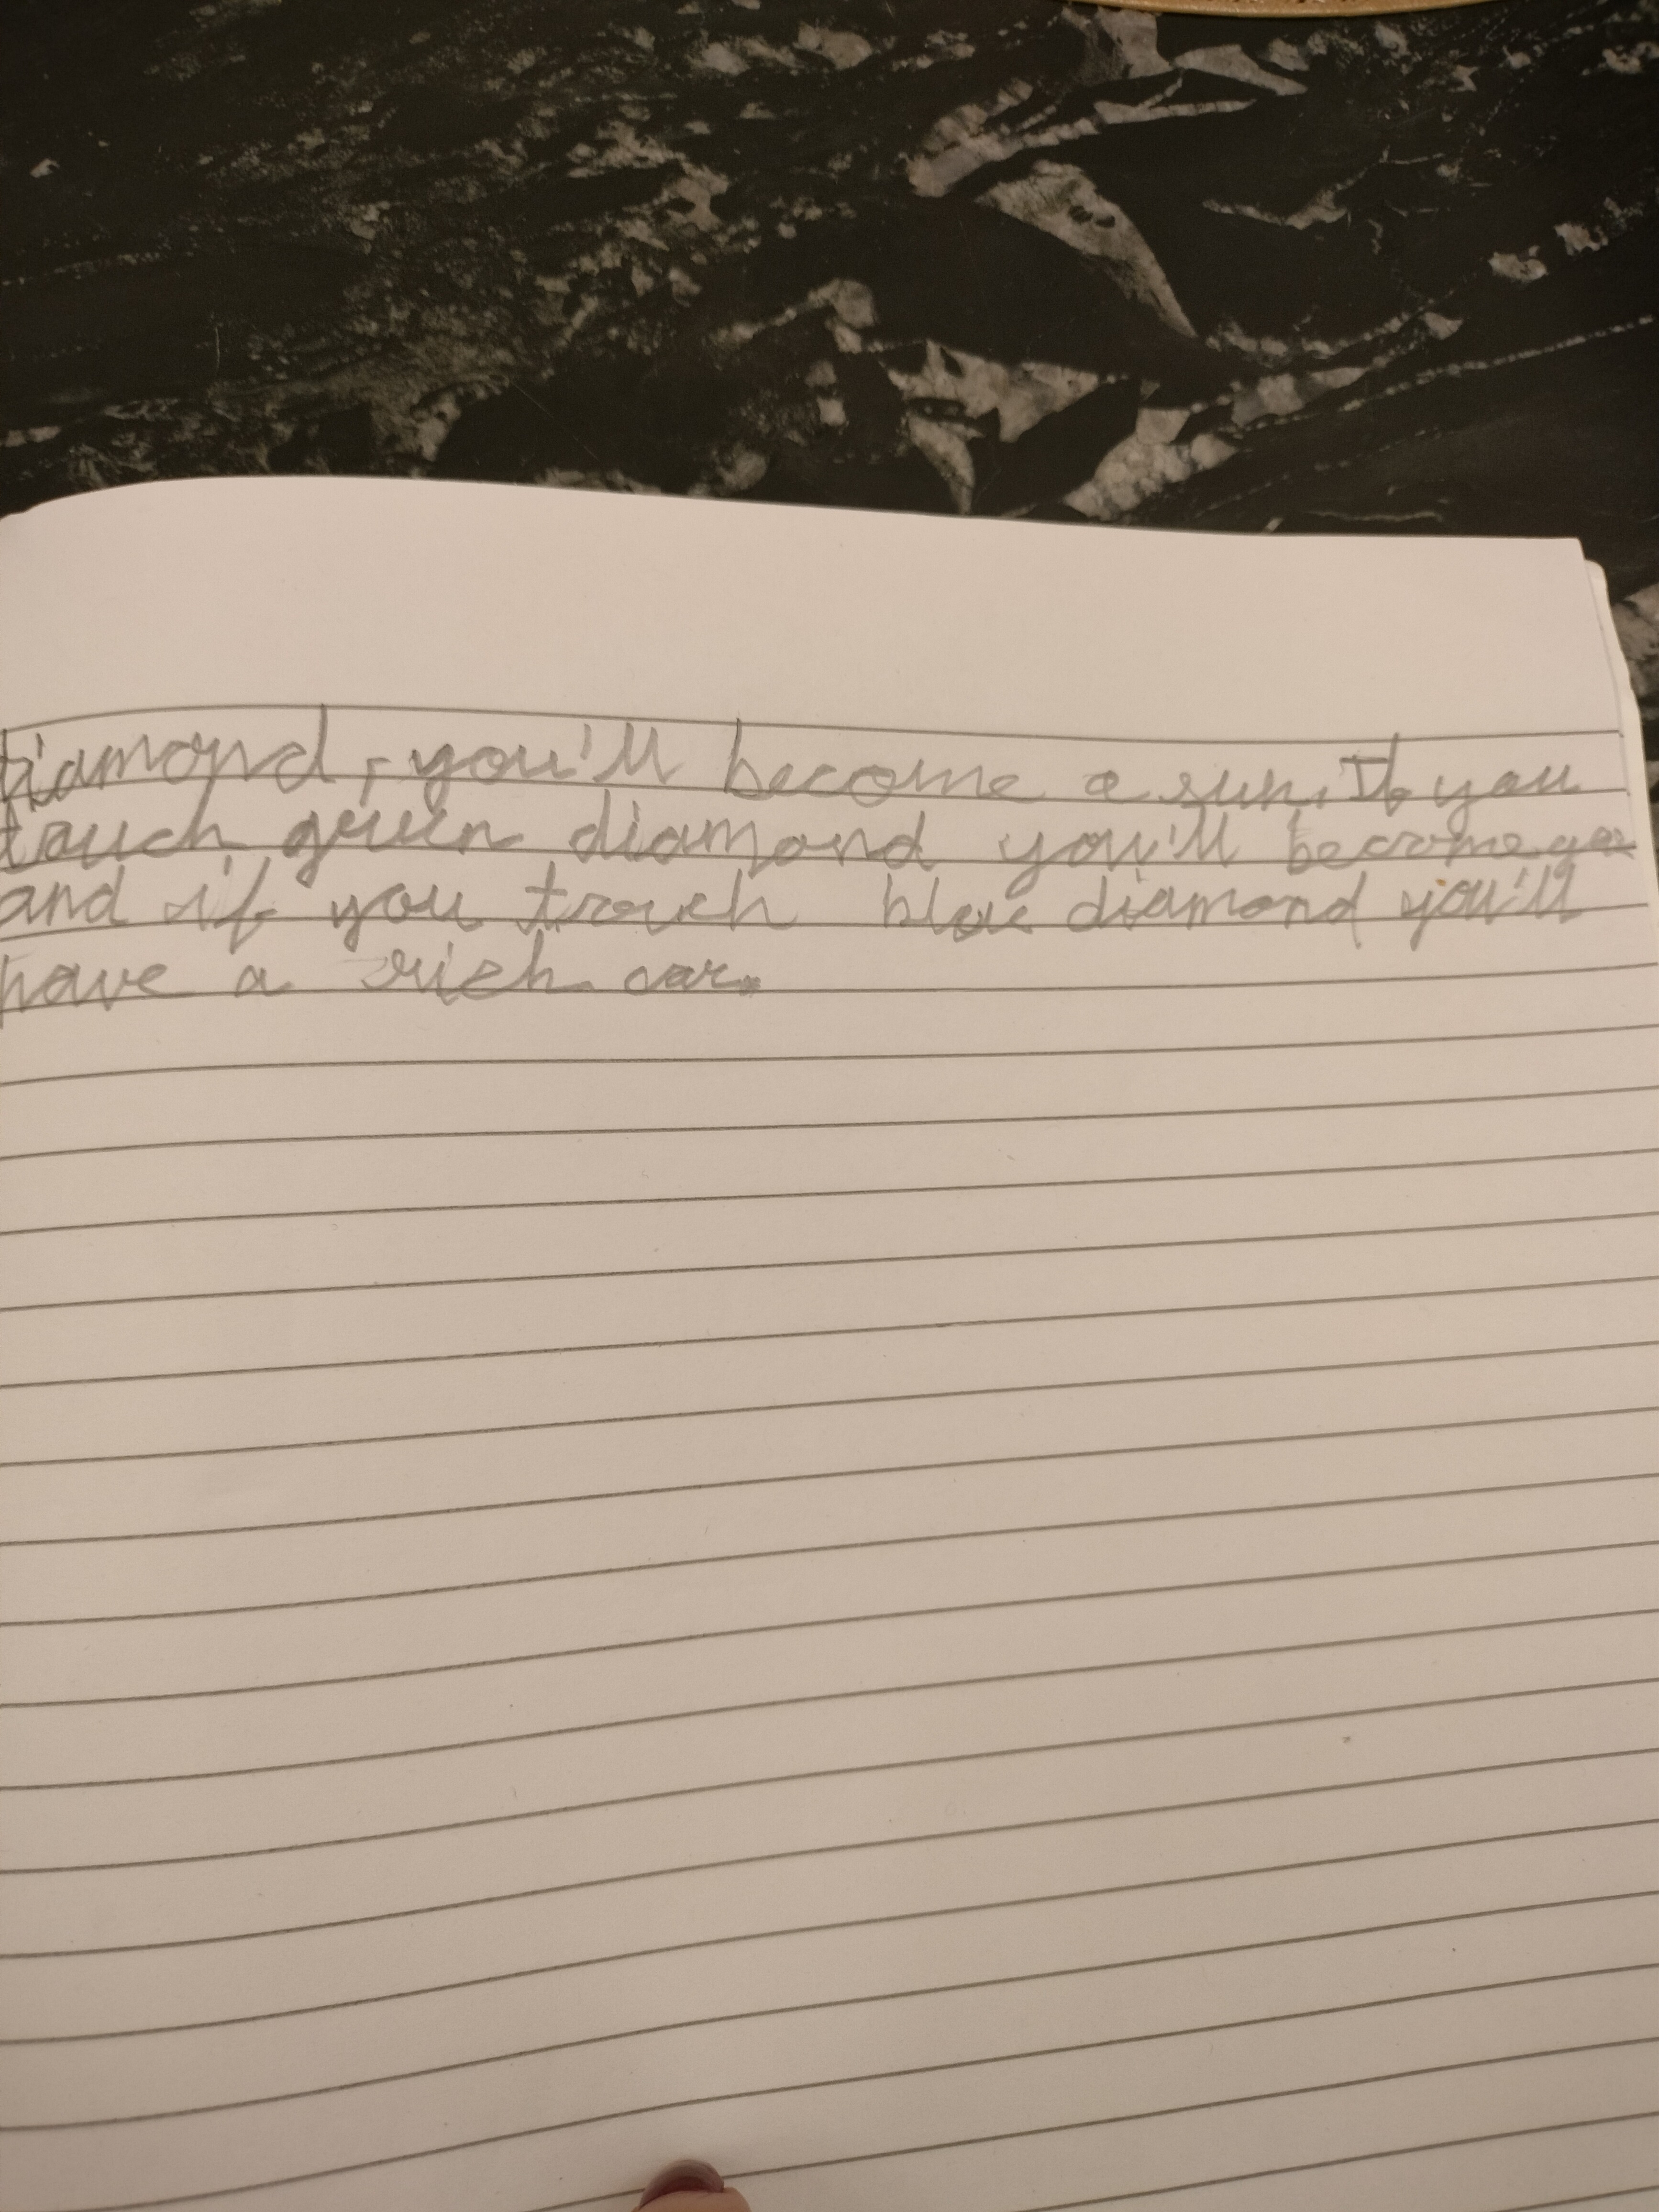 diamond, you'll become a sun. If you
touch green diamond you'll become
and if you trouch blue diamond you'll
have a rich car.